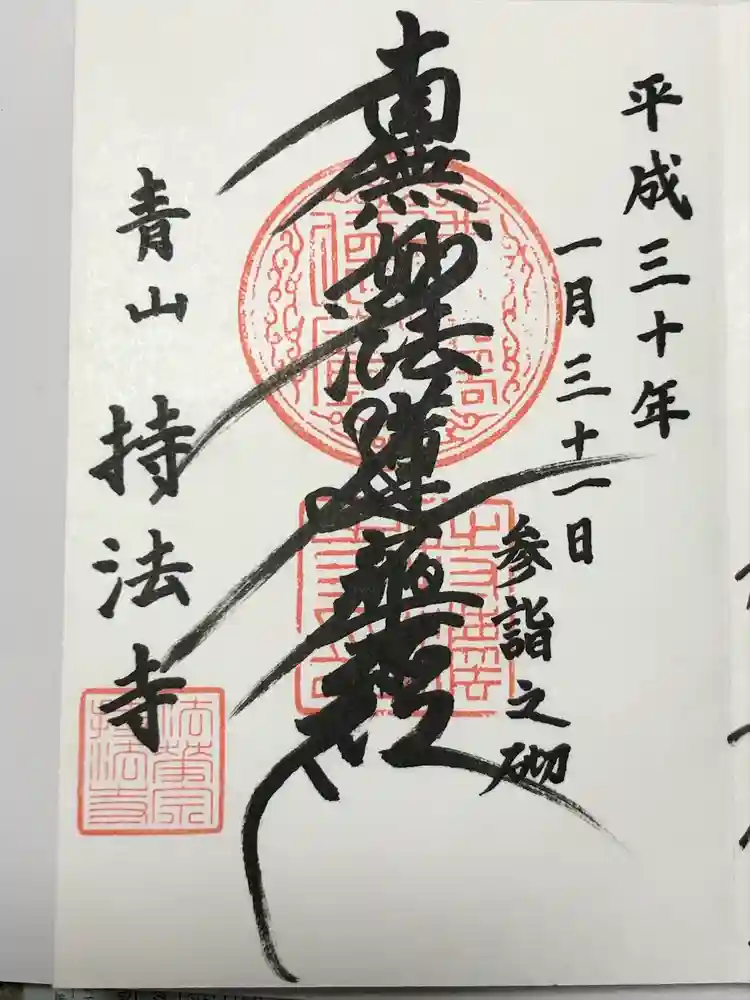 平成三十年
一月三十一日
参詣之砌
南無妙法蓮華経
青山
持法寺
法華宗
持法寺